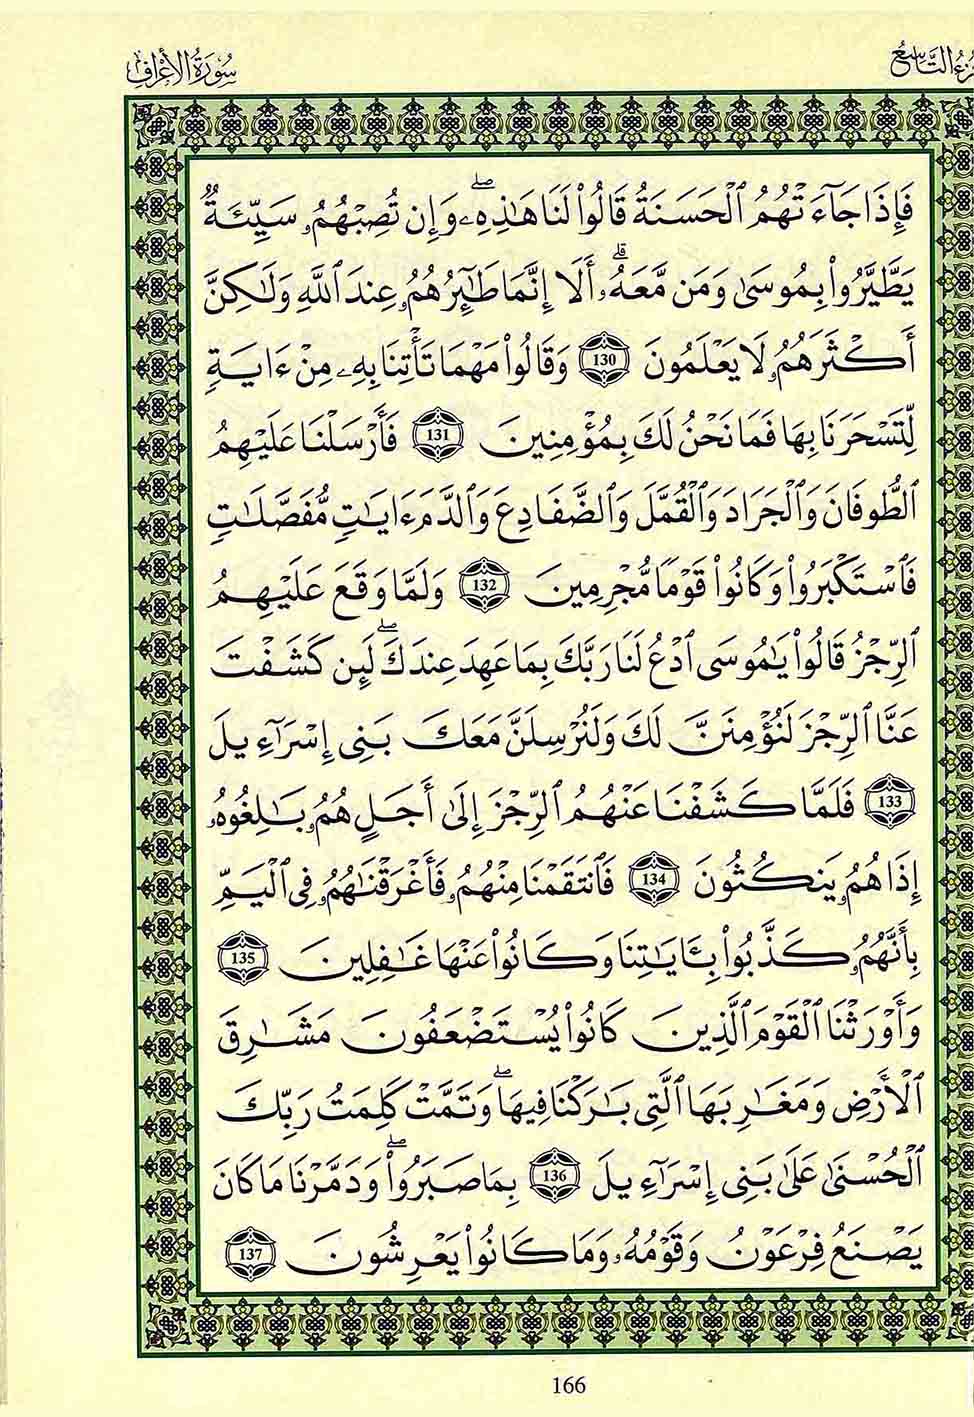 الجزء التاسع
سُورَةُ الأَعْرَافِ
فَإِذَا جَآءَتْهُمُ ٱلْحَسَنَةُ قَالُوا۟ لَنَا هَٰذِهِۦ ۖ وَإِن تُصِبْهُمُۥ سَيِّئَةٌ
يَطَّيَّرُوا۟ بِمُوسَىٰ وَمَن مَّعَهُۥ ۗ أَلَا إِنَّمَا طَٰٓئِرُهُمُۥ عِندَ ٱللَّهِ وَلَٰكِنَّ
أَكْثَرَهُمُۥ لَا يَعْلَمُونَ 130 وَقَالُوا۟ مَهْمَا تَأْتِنَا بِهِۦ مِنْ ءَايَةٍ
لِّتَسْحَرَنَا بِهَا فَمَا نَحْنُ لَكَ بِمُؤْمِنِينَ 131 فَأَرْسَلْنَا عَلَيْهِمُ
ٱلطُّوفَانَ وَٱلْجَرَادَ وَٱلْقُمَّلَ وَٱلضَّفَادِعَ وَٱلدَّمَ ءَايَٰتٍ مُّفَصَّلَٰتٍ
فَٱسْتَكْبَرُوا۟ وَكَانُوا۟ قَوْمًا مُّجْرِمِينَ 132 وَلَمَّا وَقَعَ عَلَيْهِمُ
ٱلرِّجْزُ قَالُوا۟ يَٰمُوسَى ٱدْعُ لَنَا رَبَّكَ بِمَا عَهِدَ عِندَكَ ۖ لَئِن كَشَفْتَ
عَنَّا ٱلرِّجْزَ لَنُؤْمِنَنَّ لَكَ وَلَنُرْسِلَنَّ مَعَكَ بَنِى إِسْرَآءِيلَ
133 فَلَمَّا كَشَفْنَا عَنْهُمُ ٱلرِّجْزَ إِلَىٰ أَجَلٍ هُمُۥ بَٰلِغُوهُۥ
إِذَا هُمُۥ يَنكُثُونَ 134 فَٱنتَقَمْنَا مِنْهُمُۥ فَأَغْرَقْنَٰهُمُۥ فِى ٱلْيَمِّ
بِأَنَّهُمُۥ كَذَّبُوا۟ بِـَٔايَٰتِنَا وَكَانُوا۟ عَنْهَا غَٰفِلِينَ 135
وَأَوْرَثْنَا ٱلْقَوْمَ ٱلَّذِينَ كَانُوا۟ يُسْتَضْعَفُونَ مَشَٰرِقَ
ٱلْأَرْضِ وَمَغَٰرِبَهَا ٱلَّتِى بَٰرَكْنَا فِيهَا ۖ وَتَمَّتْ كَلِمَتُ رَبِّكَ
ٱلْحُسْنَىٰ عَلَىٰ بَنِى إِسْرَآءِيلَ 136 بِمَا صَبَرُوا۟ ۖ وَدَمَّرْنَا مَا كَانَ
يَصْنَعُ فِرْعَوْنُ وَقَوْمُهُۥ وَمَا كَانُوا۟ يَعْرِشُونَ 137
166